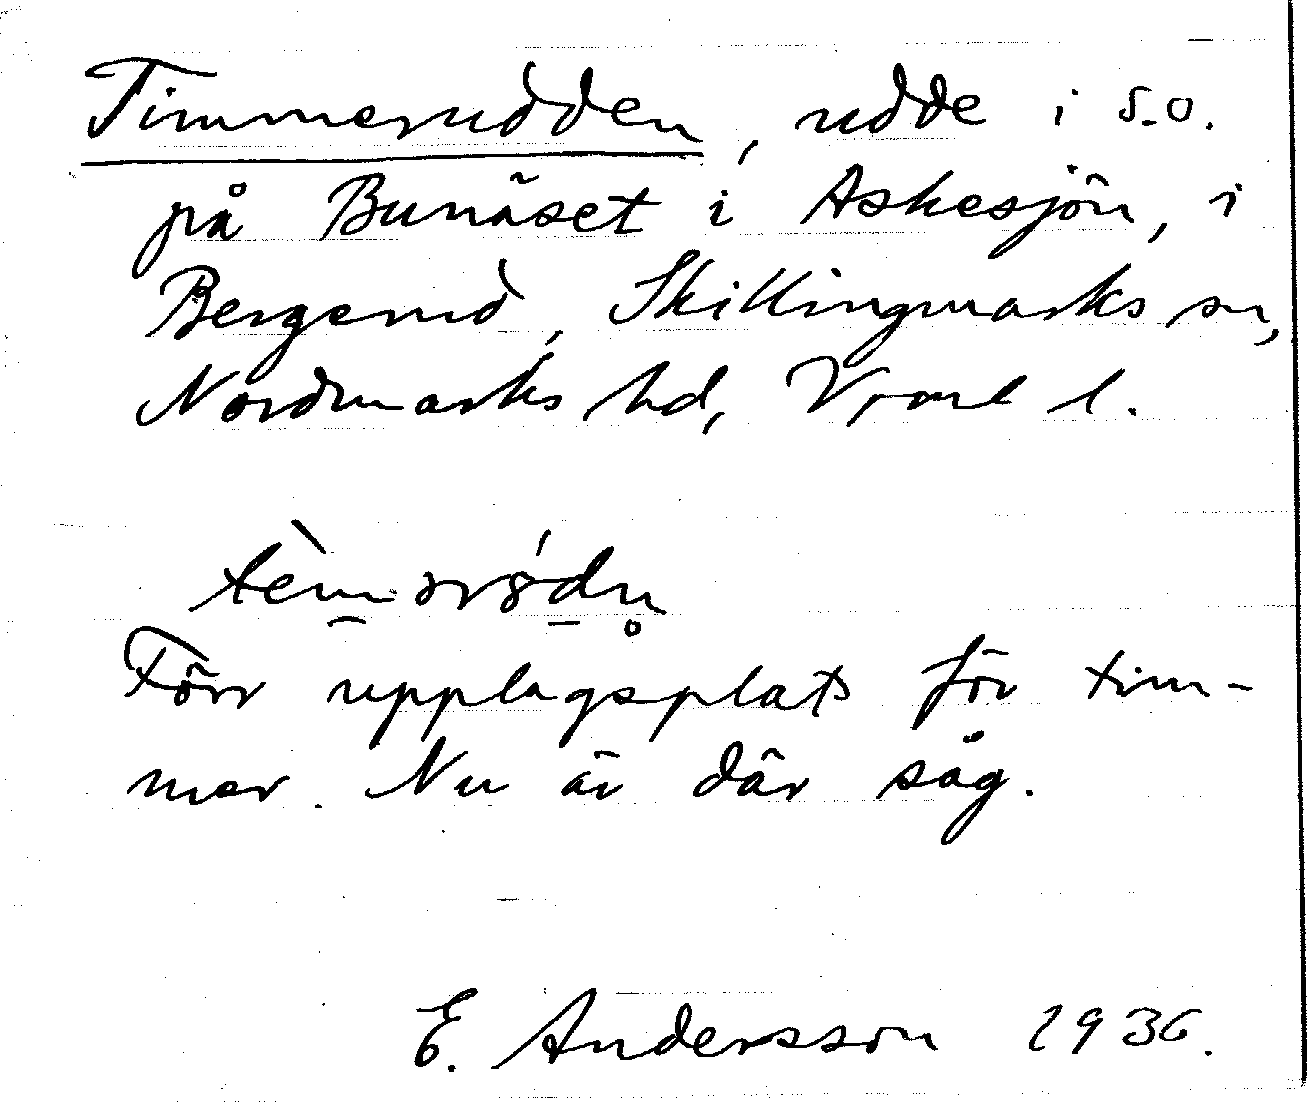 Timmerudden, udde i S.O.
på Bunäset i Askesjön, i
Bergerud, Skillingmarks sn,
Nordmarks hd, Vrml l.
Förr upplagsplats för tim-
mer. Nu är där såg.
E. Andersson 1936.